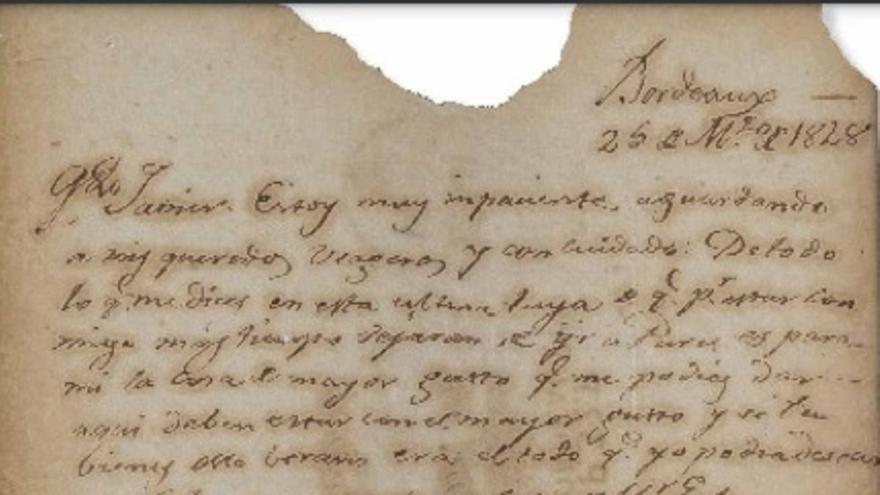 Bordeaux —
26 de Mzo de 1828
Qdo Javier. Estoy muy inpaciente, aguardando
a mis queridos Viageros y con cuidado: De todo
lo q.e me dices en esta ultima tuya de q.e p.r estar con
migo mas tiempo dejaran de yr a Paris es para
mi la cosa de mayor gusto q.e me podias dar
aqui deben estar con el mayor gusto y si tu
bienes este berano era el todo q.e yo podia desear